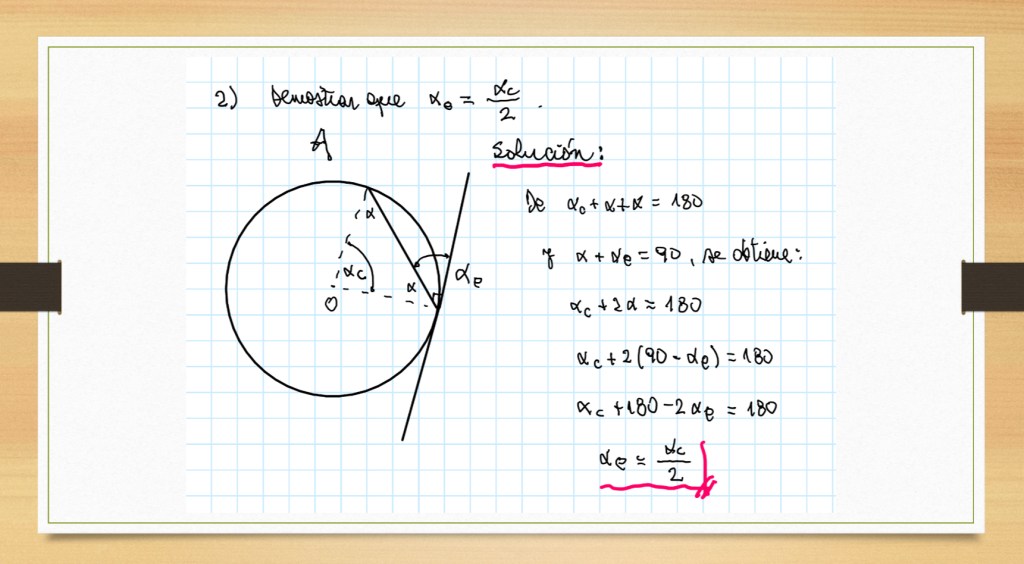 2) Demostrar que αe = αc/2 .
A
Solución:
De αc + α + α = 180
y α + αe = 90, se obtiene:
αc + 2α = 180
αc + 2(90 - αe) = 180
αc + 180 - 2αe = 180
αe = αc/2
α
αc
α
αe
O